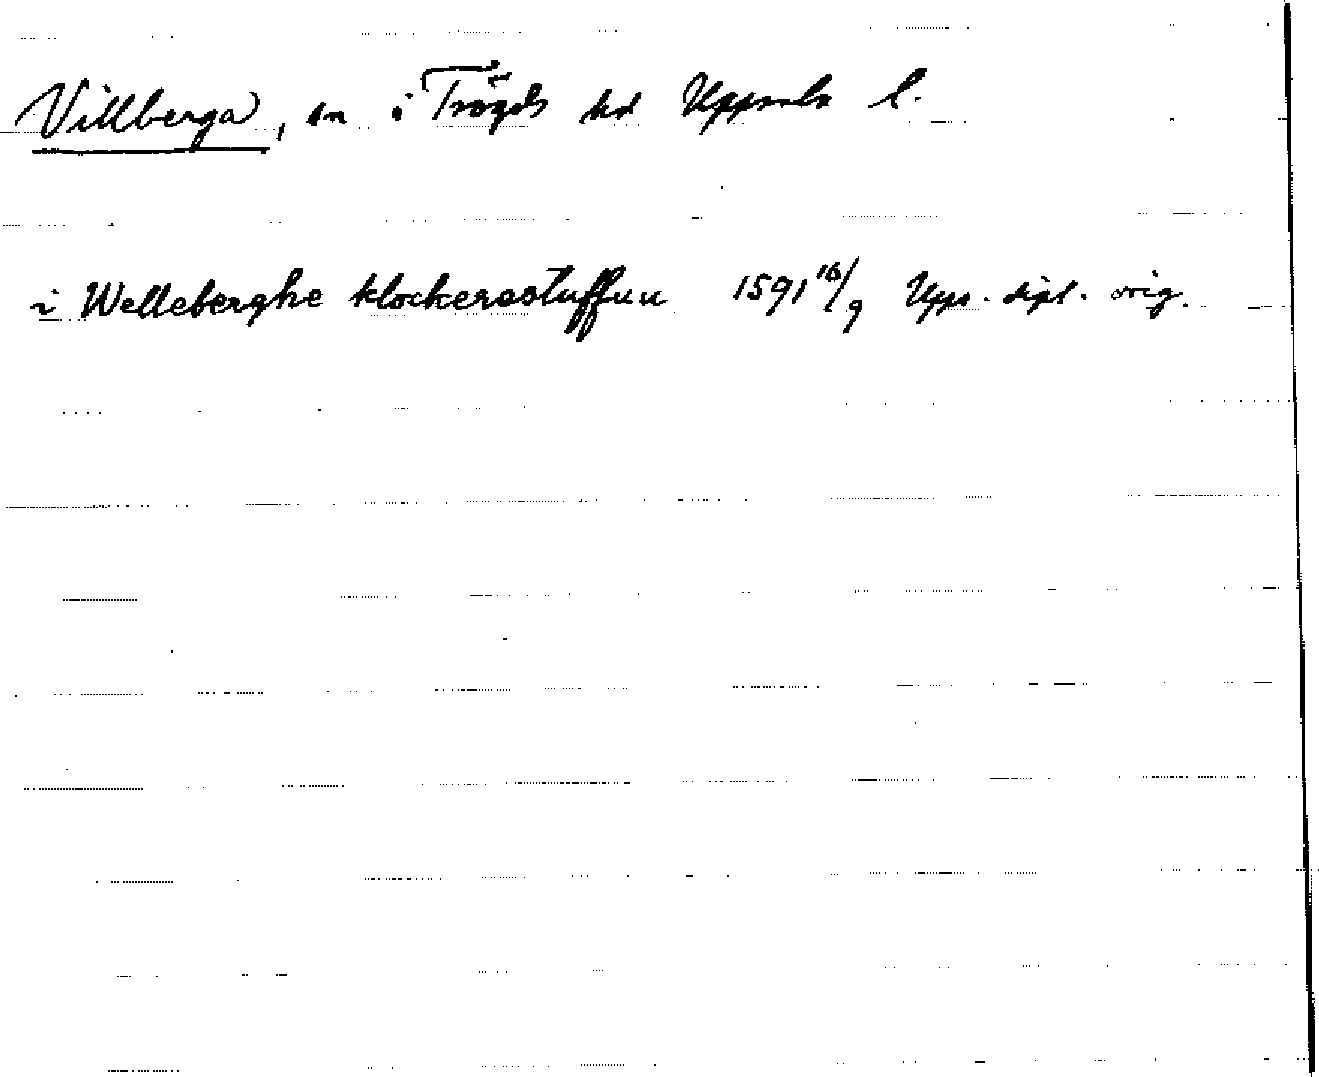 Villberga, sn i Trögds hd Uppsala l.
i Welleberghe klockerestuffuu 1591 16/9 Upps. dipl. orig.